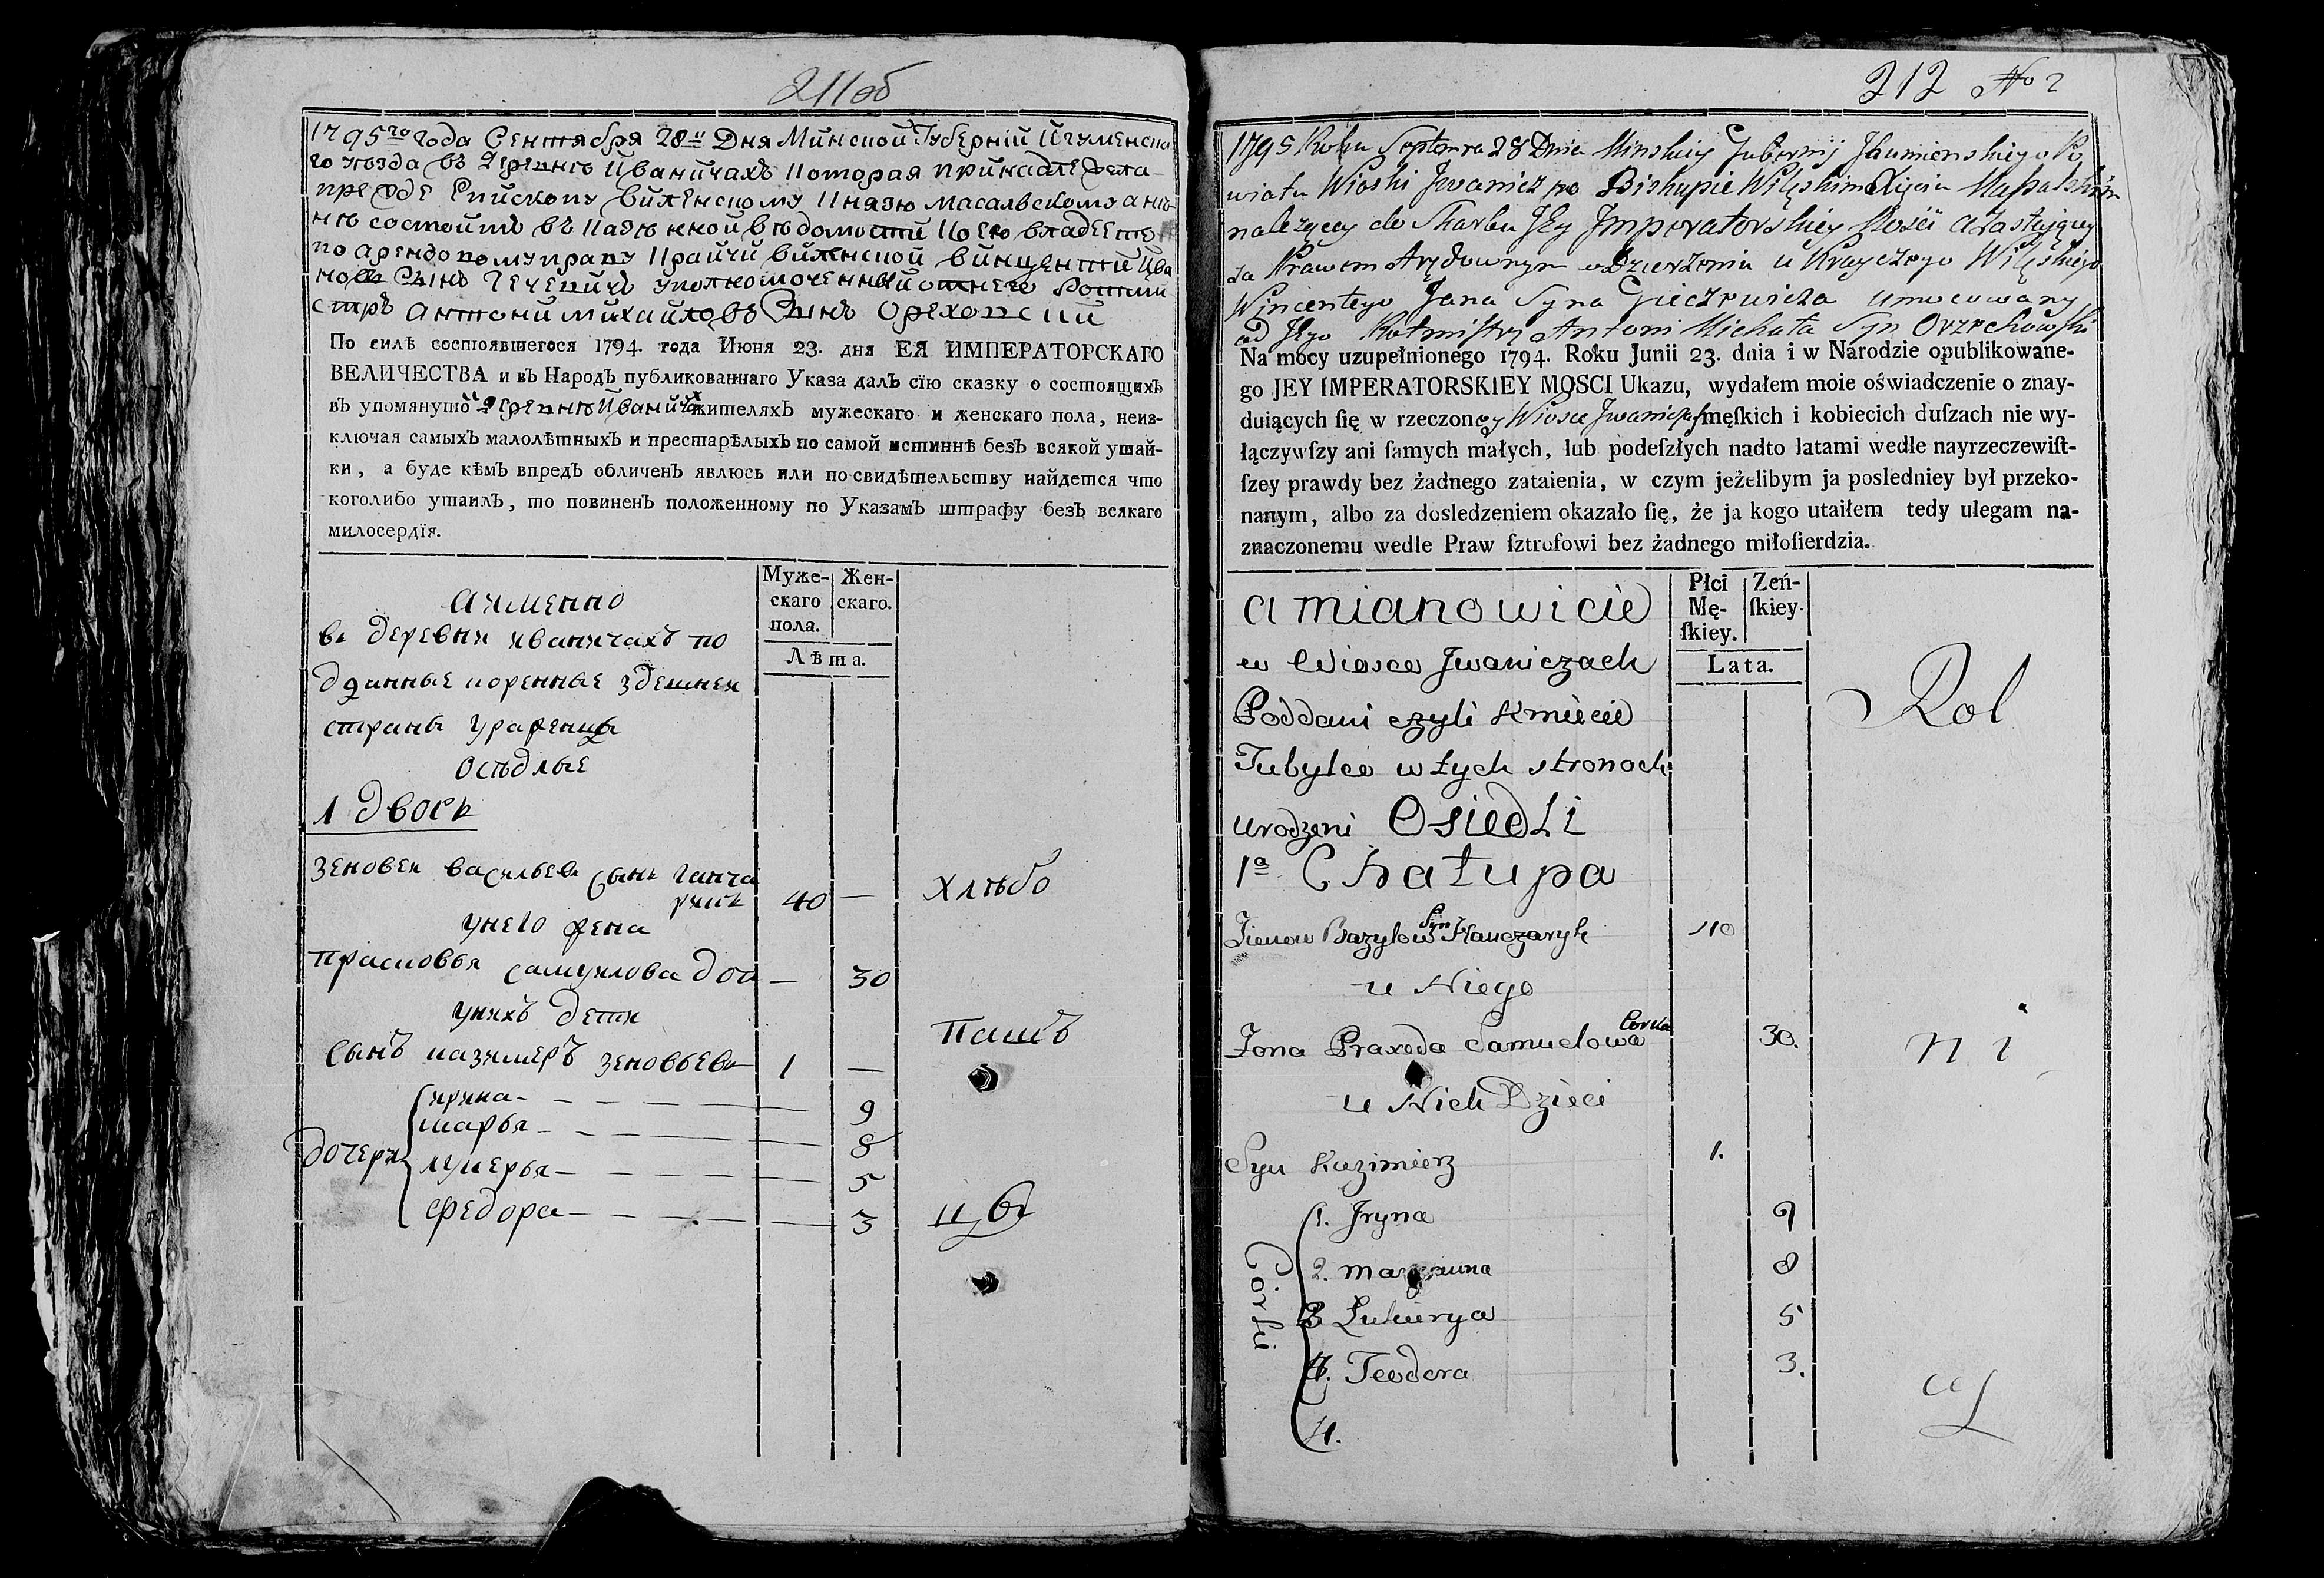 211об
1795го года Сентября 28го Дня Минской Губерній Игуменска
го уезда въ деревнѣ Иваничахъ которая принадлежала
прежде Епископу виленскому Князю масальскому а нынѣ
не состоитъ въ казенной вѣдомости Коею владеетъ
по арендовому праву Крайчи виленской винценти Ива
новъ Сынъ Гечевичъ уполномоченный отнего Ротми
стръ антони михайловъ Сынъ Орехо
По силѣ состоявшегося 1794. года Июня 23. дня ЕЯ ИМПЕРАТОРСКАГО
ВЕЛИЧЕСТВА и въ Народѣ публикованнаго Указа далъ сїю сказку о состоящихъ
въ упомянутой деревнѣ Иваничахъ жителяхъ мужескаго и женскаго пола, неиз-
ключая самыхъ малолѣтныхъ и престарѣлыхъ по самой истиннѣ безъ всякой утай-
ки, а буде кѣмъ впредь обличенъ явлюсь или по свидѣтельству найдется что
коголибо утаилъ, то повиненъ положенному по Указамъ штрафу безъ всякаго
милосердїя.
Муже-
скаго
пола.
Жен-
скаго.
Лѣта.
а имѣнно
въ деревни иваничахъ по
дданные коренные здешнеи
страны урожѣнцы
Осѣдлые
1 дворъ
зеновеи васильевъ сынъ ганча
рикъ 40 —
унего жена
прасковья самуилова доч — 30
унихъ дети
сынъ казимеръ зеновьевъ 1 —
дочери
ирина 9
марья 8
лукерья 5
федора 3
хлѣбо
пашъ
цы
212 № 2
1795 Roku Septembra 28 Dnia Minskiey Gubernij Ihumenskiego Po
wiatu Wioski Iwanicz po Biskupie Wileskim Xięciu Massalskim
należący do Skarbu Jey Imperatorskiey Mości a zostający
za Prawem Arędownym w Dzierżeniu u Krayczego Wileskiego
Wincentego Jana Syna Gieczewicza umocowany
od Jego Rotmistrz Antoni Michała Syn Orzechowski
Na mocy uzupełnionego 1794. Roku Junii 23. dnia i w Narodzie opublikowane-
go JEY IMPERATORSKIEY MOSCI Ukazu, wydałem moie oświadczenie o znay-
duiących ſię w rzeczoney Wiosce Iwaniczach męſkich i kobiecich duſzach nie wy-
łączywſzy ani ſamych małych, lub podeſzłych nadto latami wedle nayrzeczewiſt-
ſzey prawdy bez żadnego zataienia, w czym jeżelibym ja posledniey był przeko-
nanym, albo za dosledzeniem okazało ſię, że ja kogo utaiłem tedy ulegam na-
znaczonemu wedle Praw ſztrofowi bez żadnego miłoſierdzia.
Płci
Mę-
ſkiey.
Zeń-
ſkiey.
Lata.
a mianowicie
w Wiosce Iwaniczach
Poddani czyli Kmiecie
Tubylce w tych stronach
urodzeni Osiedli
1a Chałupa
Zienow Bazylow Syn Hanczaryk 40
u Niego
Żona Praxeda Samuelowa Corka 30.
u Nich Dzieci
Syn Kazimierz 1.
Córki
1. Iryna 9
2. Maryanna 8
3 Lukierya 5
4. Teodora 3.
4.
Rol
ni
cy